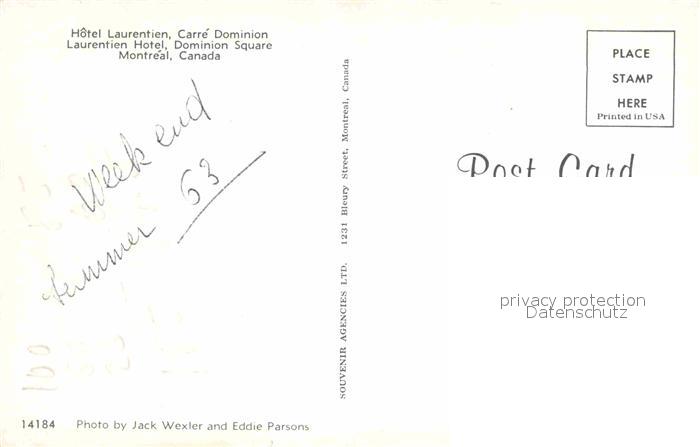 Hôtel Laurentien, Carré Dominion
Laurentien Hotel, Dominion Square
Montréal, Canada
Week end
summer 63
14184 Photo by Jack Wexler and Eddie Parsons
SOUVENIR AGENCIES LTD. 1231 Bleury Street, Montreal, Canada
PLACE
STAMP
HERE
Printed in USA
Post Card
privacy protection
Datenschutz